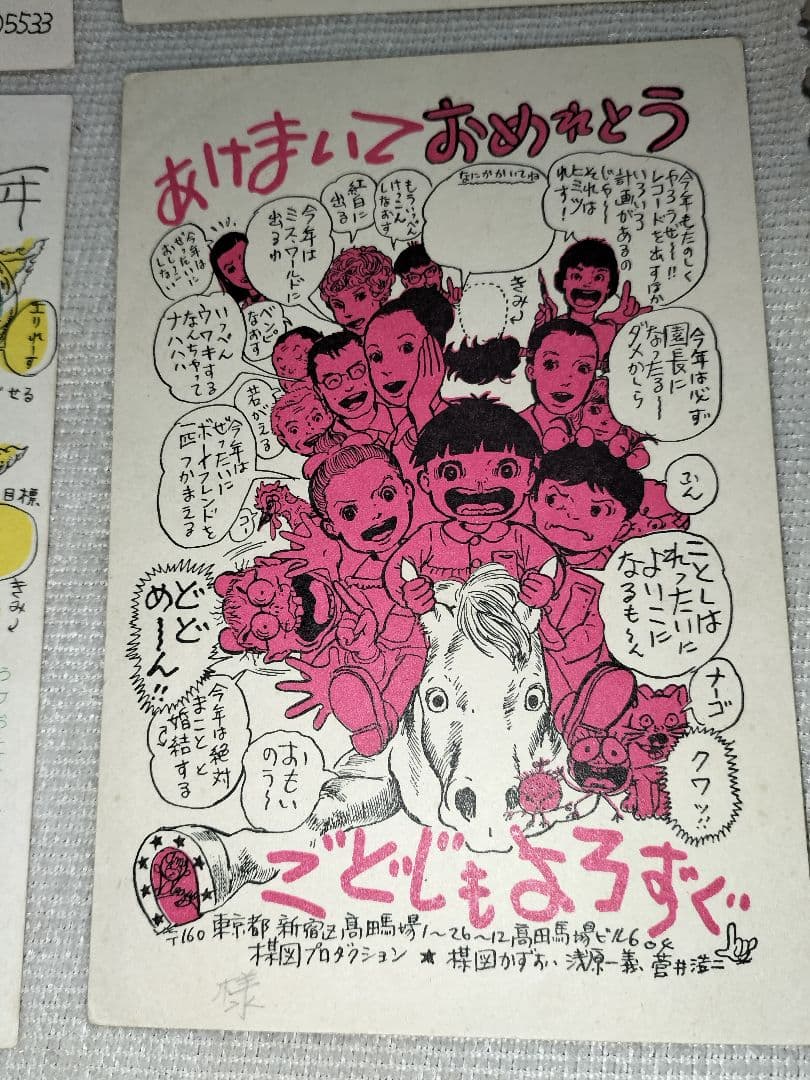 05533
年
エリれーす
せる
目標
きみ
あけまいて おめれとう
今年もたのしく
やろうぜ〜!!
レコードを出すほか
いろいろ
計画があるの
じゃ〜
それは
ヒミツ
れす!
なにかかいてね
きみ
もういっぺん
けっこん
しなおす
紅白に
出る
今年は
ミス・ワールドに
出るゆ
今年は
ぜったいに
おしっこ
しない
いっぺん
ウワキする
なんちゃって
ナハハハ
ベンピ
なおす
今年は必ず
園長に
なったる〜
ダメかしら
若がえる
今年は
ぜったいに
ボーイフレンドを
一匹つかまえる
コー
ふん
ことしは
れったいに
よいこに
なるも〜ん
どど
め〜ん!!
ナーゴ
今年は絶対
まことと
婚結する
おもい
のう〜
クワッ!!
ごどじも よろずぐ
〒160 東京都新宿区高田馬場1〜26〜12高田馬場ビル604
楳図プロダクション ★ 楳図かずお、浅原一義、菅井浩二
様